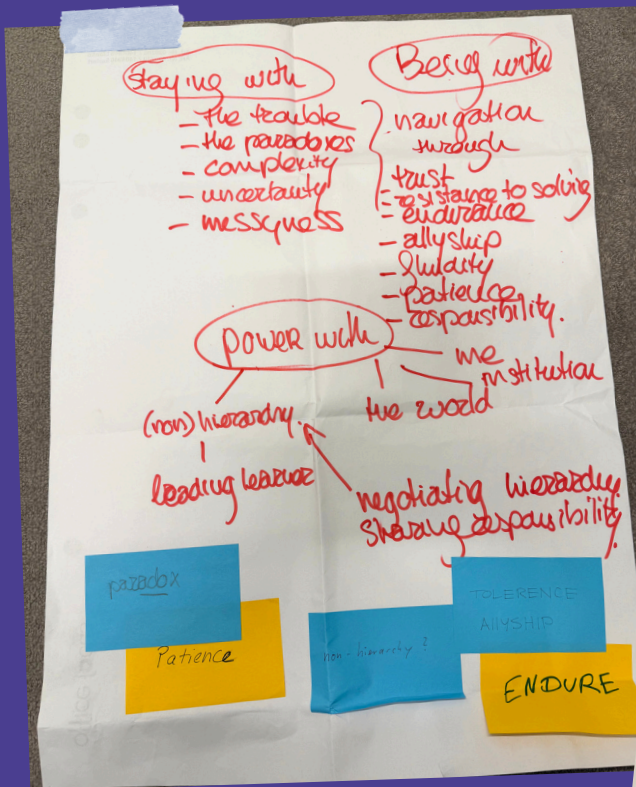 Staying with
- the trouble
- the paradoxes
- complexity
- uncertainty
- messyness
Being with
navigation
through
trust
- resistance to solving
- endurance
- allyship
- fluidity
- patience
- responsibility.
power with
me
institution
the world
(non) hierarchy.
leading learner
negotiating hierarchy.
sharing responsibility.
paradox
Patience
non-hierarchy?
TOLERENCE
ALLYSHIP
ENDURE